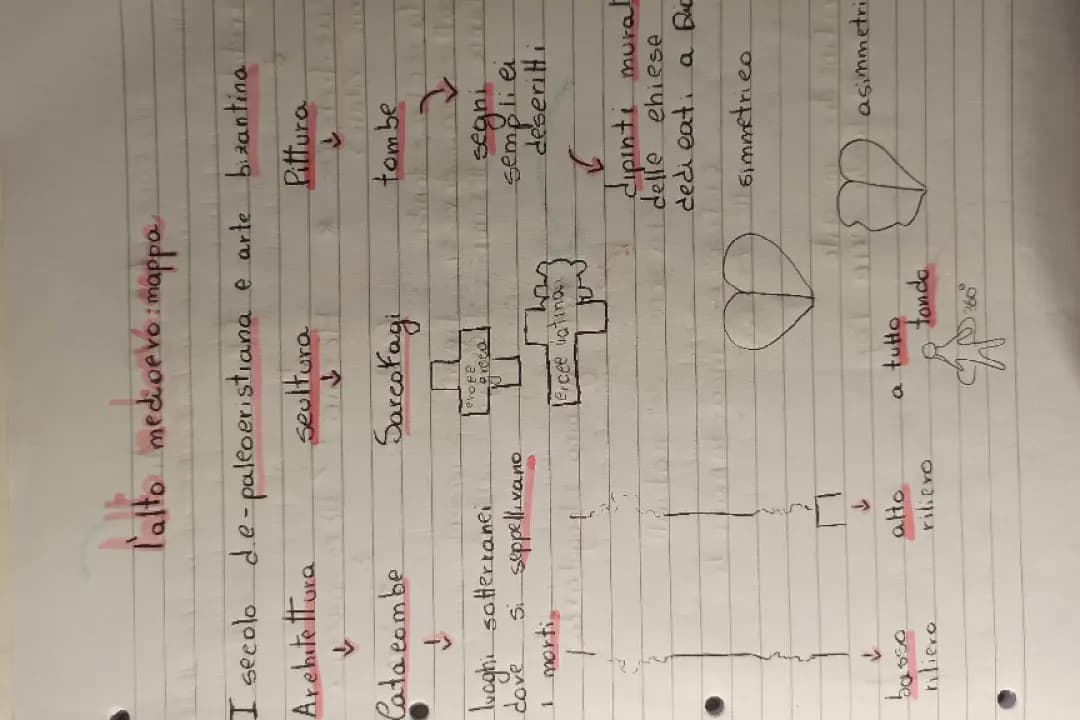 l'alto medioevo: mappa
I secolo d.c - paleocristiana e arte bizantina
Architettura scultura Pittura
Catacombe Sarcofagi tombe
luoghi sotterranei
dove si seppellivano
i morti.
croce
greca
croce latina
segni
semplici
descritti
dipinti mural
delle chiese
dedicati a Dio
simmetrico
asimmetri
basso
rilievo
alto
rilievo
a tutto
tondo
360°